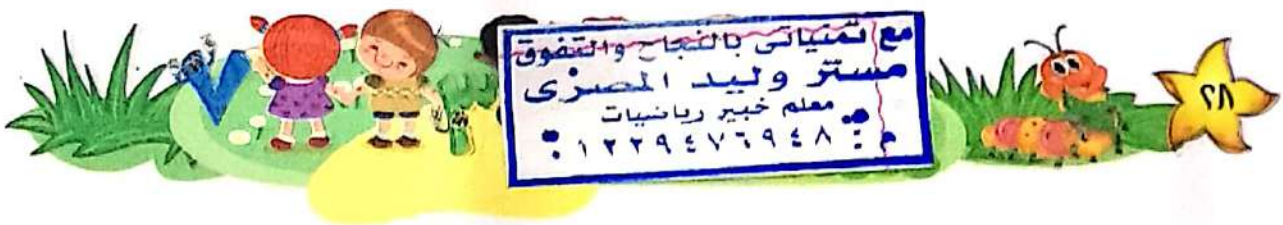 مع تمنياتى بالنجاح والتفوق
مستر وليد المصرى
معلم خبير رياضيات
م : ٠١٢٢٩٤٧٦٩٤٨
٢٨